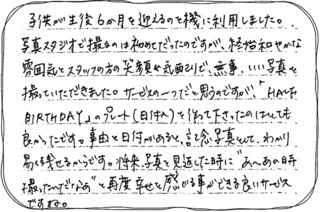 子供が生後6か月を迎えるのを機に利用しました。
写真スタジオで撮るのは初めてだったのですが、終始和やかな
雰囲気とスタッフの方の笑顔や気配りで、無事、いい写真を
撮っていただきました。サービスの一つだと思うのですが、"HALF
BIRTHDAY"のプレート(日付入)を作って下さったのはとても
良かったです。事由と日付があると、記念写真として、わかり
易く残せるからです。将来写真を見返した時に"あ〜あの時
撮ったんだなぁ"と再度幸せを感じる事ができる良いサービス
ですね。